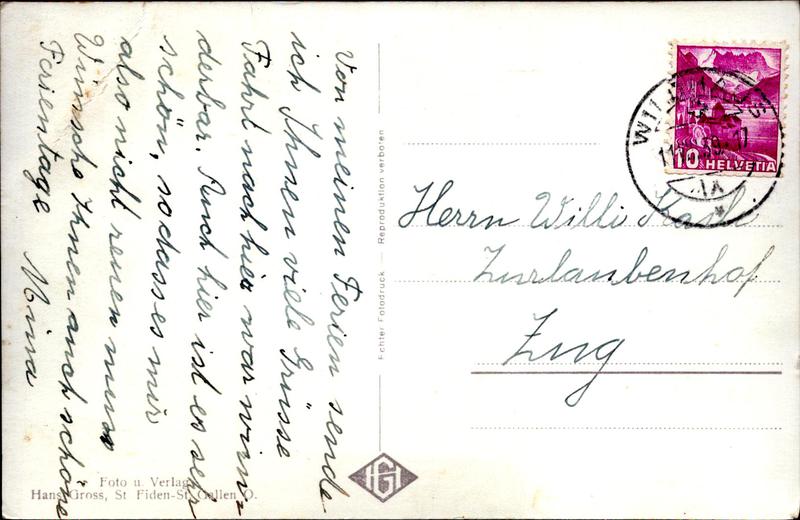 Von meinen Ferien sende
ich Ihnen viele Grüsse
Fahrt nach hier war wun-
derbar. Auch hier ist es sehr
schön, sodass es mir
also nicht reuen muss
Wünsche Ihnen auch schöne
Ferientage Mina
Foto u. Verlag
Hans Gross, St Fiden-St. Gallen O.
Echter Fotodruck — Reproduktion verboten
HG
10 HELVETIA
IX
Herrn Willi
Zurlaubenhof
Zug